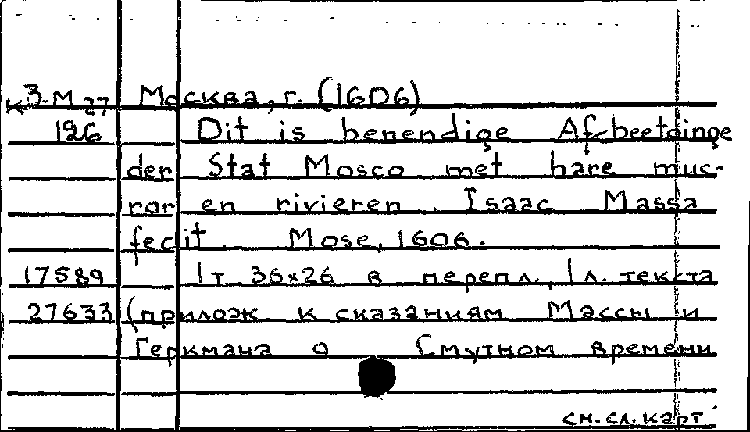 к З-М 27 Москва, г. (1606)
126 Dit is benendige Afcbeetdinge
der Stat Mosco met hare muc-
ror en rivieren. Isaac Massa
fecit. Mosc, 1606.
17589 1т 36х26 в перепл., 1 л. текста
27633 (прилож к сказаниям Массы и
Геркмана о Смутном времени
см. сл. карт